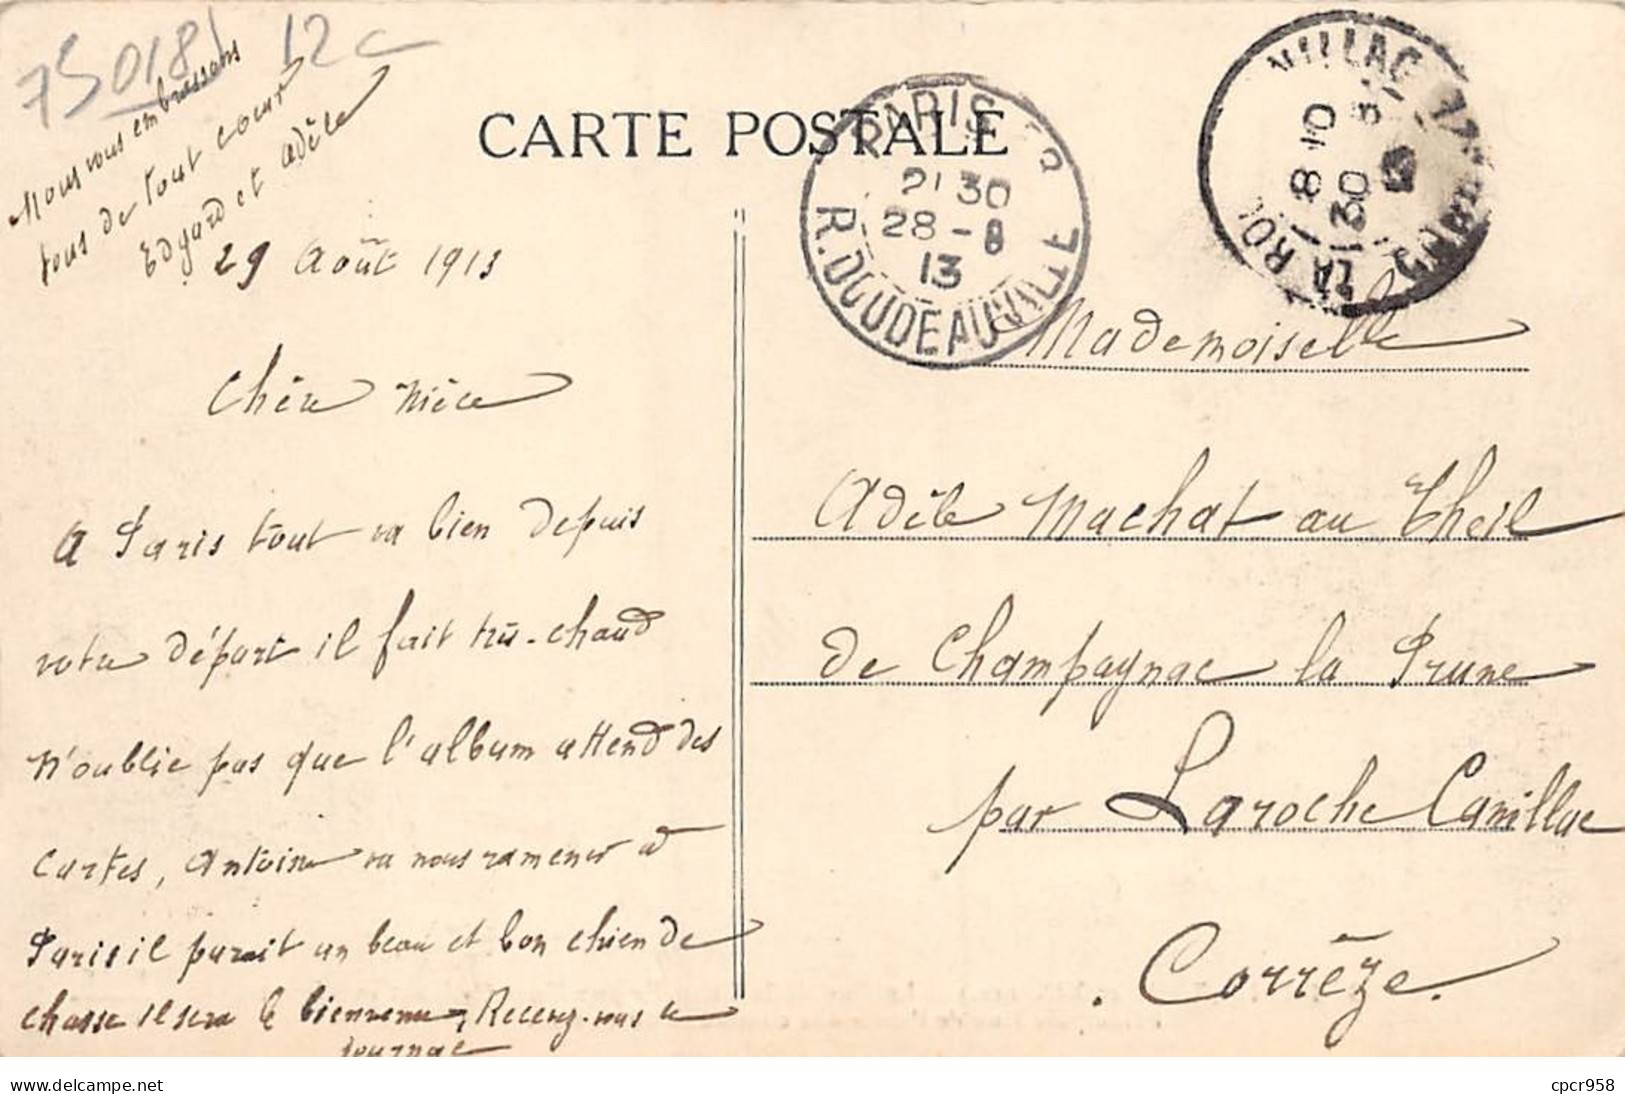 75018 12c
Nous vous embrassons
tous de tout cœur
Edgard et Adèle
CARTE POSTALE
PARIS
21 30
28 - 8
13
R. DOUDEAUVILLE
8 10
30
LA RO
29 Août 1913
Chère nièce
A Paris tout va bien depuis
votre départ il fait très-chaud
N'oublie pas que l'album attend des
Cartes, Antoine va nous ramener à
Paris il parait un beau et bon chien de
chasse il sera le bienvenu, Recevez-vous le
journal
Mademoiselle
Adèle Machat au Theil
de Champagnac la Prune
par Laroche Canillac
Corrèze.
cpcr958